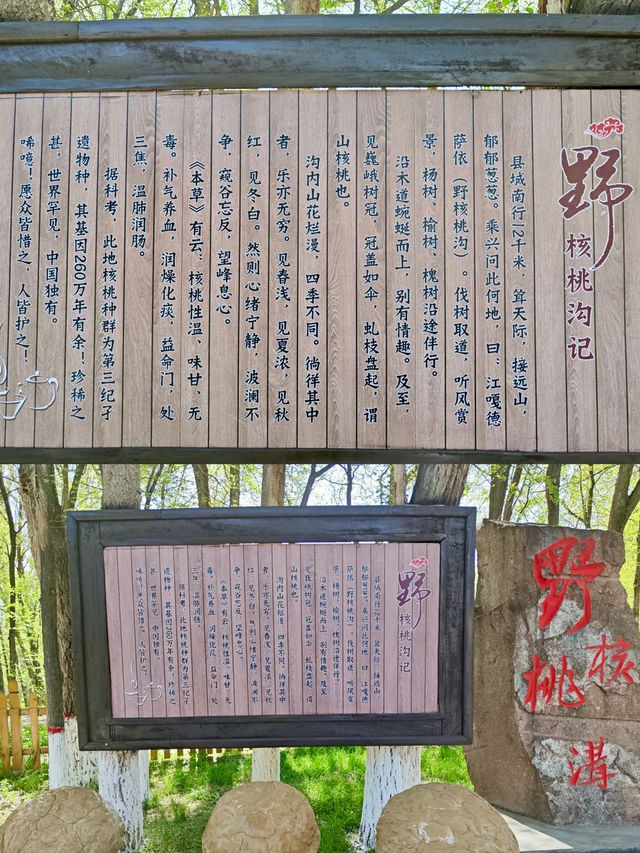 野核桃沟记
县城南行12千米，耸天际，接远山，
郁郁葱葱。乘兴问此何地，曰：江嘎德
萨依（野核桃沟）。伐树取道，听风赏
景，杨树、榆树、槐树沿途伴行。
沿木道蜿蜒而上，别有情趣。及至，
见巍峨树冠，冠盖如伞，虬枝盘起，谓
山核桃也。
沟内山花烂漫，四季不同。徜徉其中
者，乐亦无穷。见春浅，见夏浓，见秋
红，见冬白。然则心绪宁静，波澜不
争，窥谷忘反，望峰息心。
《本草》有云：核桃性温、味甘、无
毒。补气养血，润燥化痰，益命门，处
三焦，温肺润肠。
据科考，此地核桃种群为第三纪孑
遗物种，其基因260万年有余！珍稀之
甚，世界罕见，中国独有。
唏噫！愿众皆惜之，人皆护之！
野核桃沟记
县城南行12千米，耸天际，接远山，
郁郁葱葱。乘兴问此何地，曰：江嘎德
萨依（野核桃沟）。伐树取道，听风赏
景，杨树、榆树、槐树沿途伴行。
沿木道蜿蜒而上，别有情趣。及至，
见巍峨树冠，冠盖如伞，虬枝盘起，谓
山核桃也。
沟内山花烂漫，四季不同。徜徉其中
者，乐亦无穷。见春浅，见夏浓，见秋
红，见冬白。然则心绪宁静，波澜不
争，窥谷忘反，望峰息心。
《本草》有云：核桃性温、味甘、无
毒。补气养血，润燥化痰，益命门，处
三焦，温肺润肠。
据科考，此地核桃种群为第三纪孑
遗物种，其基因260万年有余！珍稀之
甚，世界罕见，中国独有。
唏噫！愿众皆惜之，人皆护之！
野核桃溝